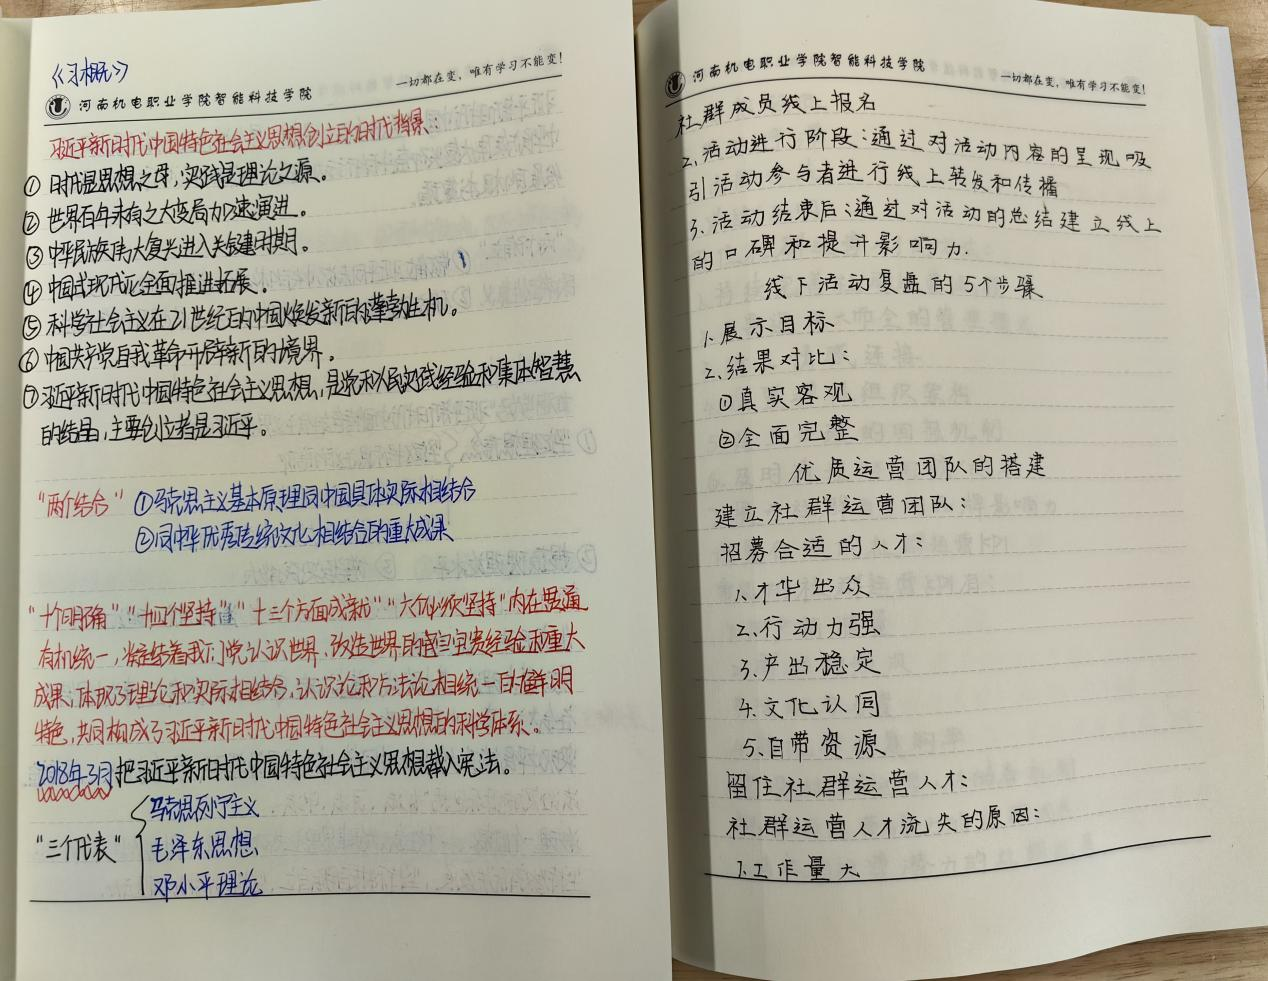 《习概》
河南机电职业学院智能科技学院
一切都在变，唯有学习不能变！
习近平新时代中国特色社会主义思想创立的时代背景：
①时代是思想之母，实践是理论之源。
②世界百年未有之大变局加速演进。
③中华民族伟大复兴进入关键时期。
④中国式现代化全面推进拓展。
⑤科学社会主义在21世纪的中国焕发新的蓬勃生机。
⑥中国共产党自我革命开辟新的境界。
⑦习近平新时代中国特色社会主义思想，是党和人民实践经验和集体智慧
的结晶，主要创立者是习近平。
"两个结合" ①马克思主义基本原理同中国具体实际相结合
②同中华优秀传统文化相结合的重大成果
"十个明确""十四个坚持""十三个方面成就""六个必须坚持"内在贯通
有机统一，凝结着我们党认识世界、改造世界的宝贵经验和重大
成果，体现了理论和实际相结合，认识论和方法论相统一的鲜明
特色，共同构成了习近平新时代中国特色社会主义思想的科学体系。
2018年3月把习近平新时代中国特色社会主义思想载入宪法。
马克思列宁主义
"三个代表" 毛泽东思想
邓小平理论
河南机电职业学院智能科技学院
一切都在变，唯有学习不能变！
社群成员线上报名
2.活动进行阶段：通过对活动内容的呈现吸
引活动参与者进行线上转发和传播
3.活动结束后：通过对活动的总结建立线上
的口碑和提升影响力.
线下活动复盘的5个步骤
1.展示目标
2.结果对比：
①真实客观
②全面完整
优质运营团队的搭建
建立社群运营团队：
招募合适的人才：
1.才华出众
2.行动力强
3.产出稳定
4.文化认同
5.自带资源
留住社群运营人才：
社群运营人才流失的原因：
1.工作量大